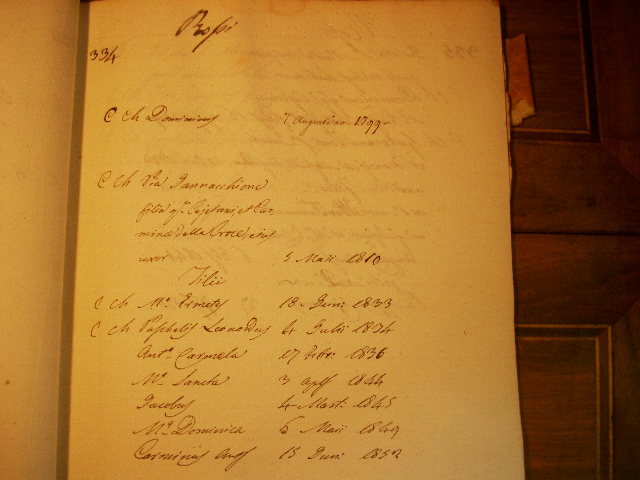 Rossi
334
C Ch Dominicus 7 Augusti an. 1799
C Ch Via Iannacchione
filia qm. Cajetani, et Car
mine della Croce, ejus
uxor 3 Maii 1810
Filii
C Ch Ma. 18 Juni 1833
C Ch Paschalis Leonardus 4 Julii 1834
Anta. Carmela 17 1836
Ma. Sancta 3 1844
Jacobus 4 Marti 1845
Ma. Dominica 6 Maii 1849
Carminius Aug 15 Juni 1852